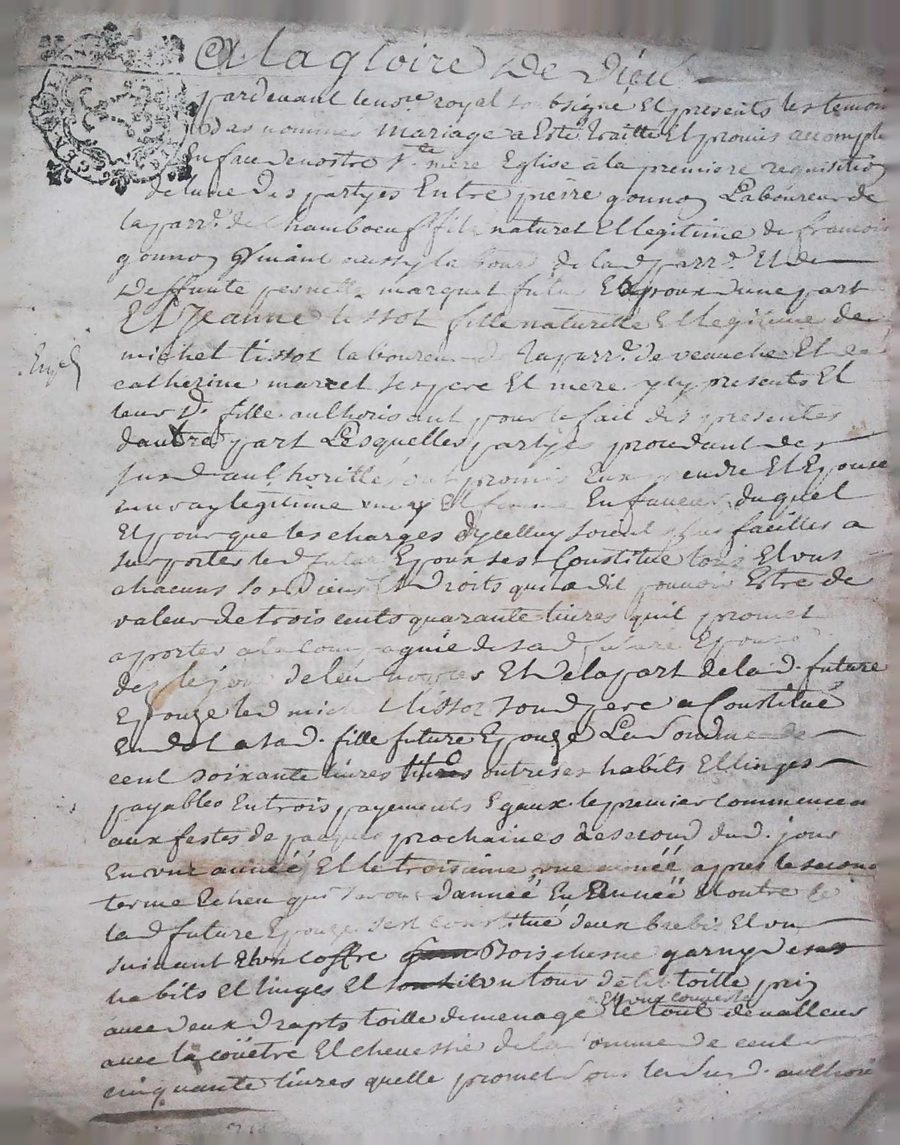 A la gloire de Dieu
pardevant le no.re royal soubsigné Et presents les temoins
bas nommés mariage a Esté traitté Et promis accomplir
En face de nostre S.te mere Eglise à la premiere requisition
de lune des partyes Entre pierre gonnoy Laboureur de
la parr.e de Chamboeuf fils naturel Et legitime de francois
gonnoy vivant aussy labour de lad parr.e Et de
deffunte marquet futur Epoux dune part
Et Jeanne tissot fille naturelle Et legitime de
michel tissot laboureur d la parr.e de veauche Et de
catherine marcet ses pere Et mere yly presents Et
leur d. fille authorisant pour le fait des presentes
dautre part Lesquelles partyes procedant de
sus d authorittés ont promis Eux prendre Et Epouser
en vray legitime mary Et femme En faveur duquel
Et pour que les charges dycelluy soient plus facilles a
supporter led futur Epoux sest Constitué tous Et uns
chacuns ses Biens Et Droits quil a dit pouvoir Estre de
valeur de trois cents quarante livres quil promet
aporter a la compagnie de sad future Epouse
des le jour de leur nopces Et de la part de la d. future
Epouze led michel tissot son d pere a Constitué
En dot a sa d. fille future Epouze La Somme de
cent soixante livres outre ses habits Et linges
payables En trois payements Egaux le premier commencera
aux festes de paques prochaines le second dud. jour
En une année Et le troisieme une année apres le second
terme Echeu qui sera d'année En Année Et outre ce
la d future Epouze sest constitué deux brebis Et un
suivant Et un coffre Bois chesne garny de ses
habits Et linges Et un tour de lit toille
Et une couverte
avec deux drapts toille de menage le tout de valleur
avec la couëtre Et chevessie de la somme de cent
cinquante livres quelle promet sous la sus d. authorité